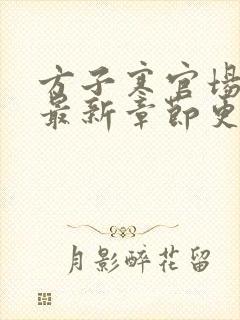 方子寒官场
最新章节更
月影醉花留